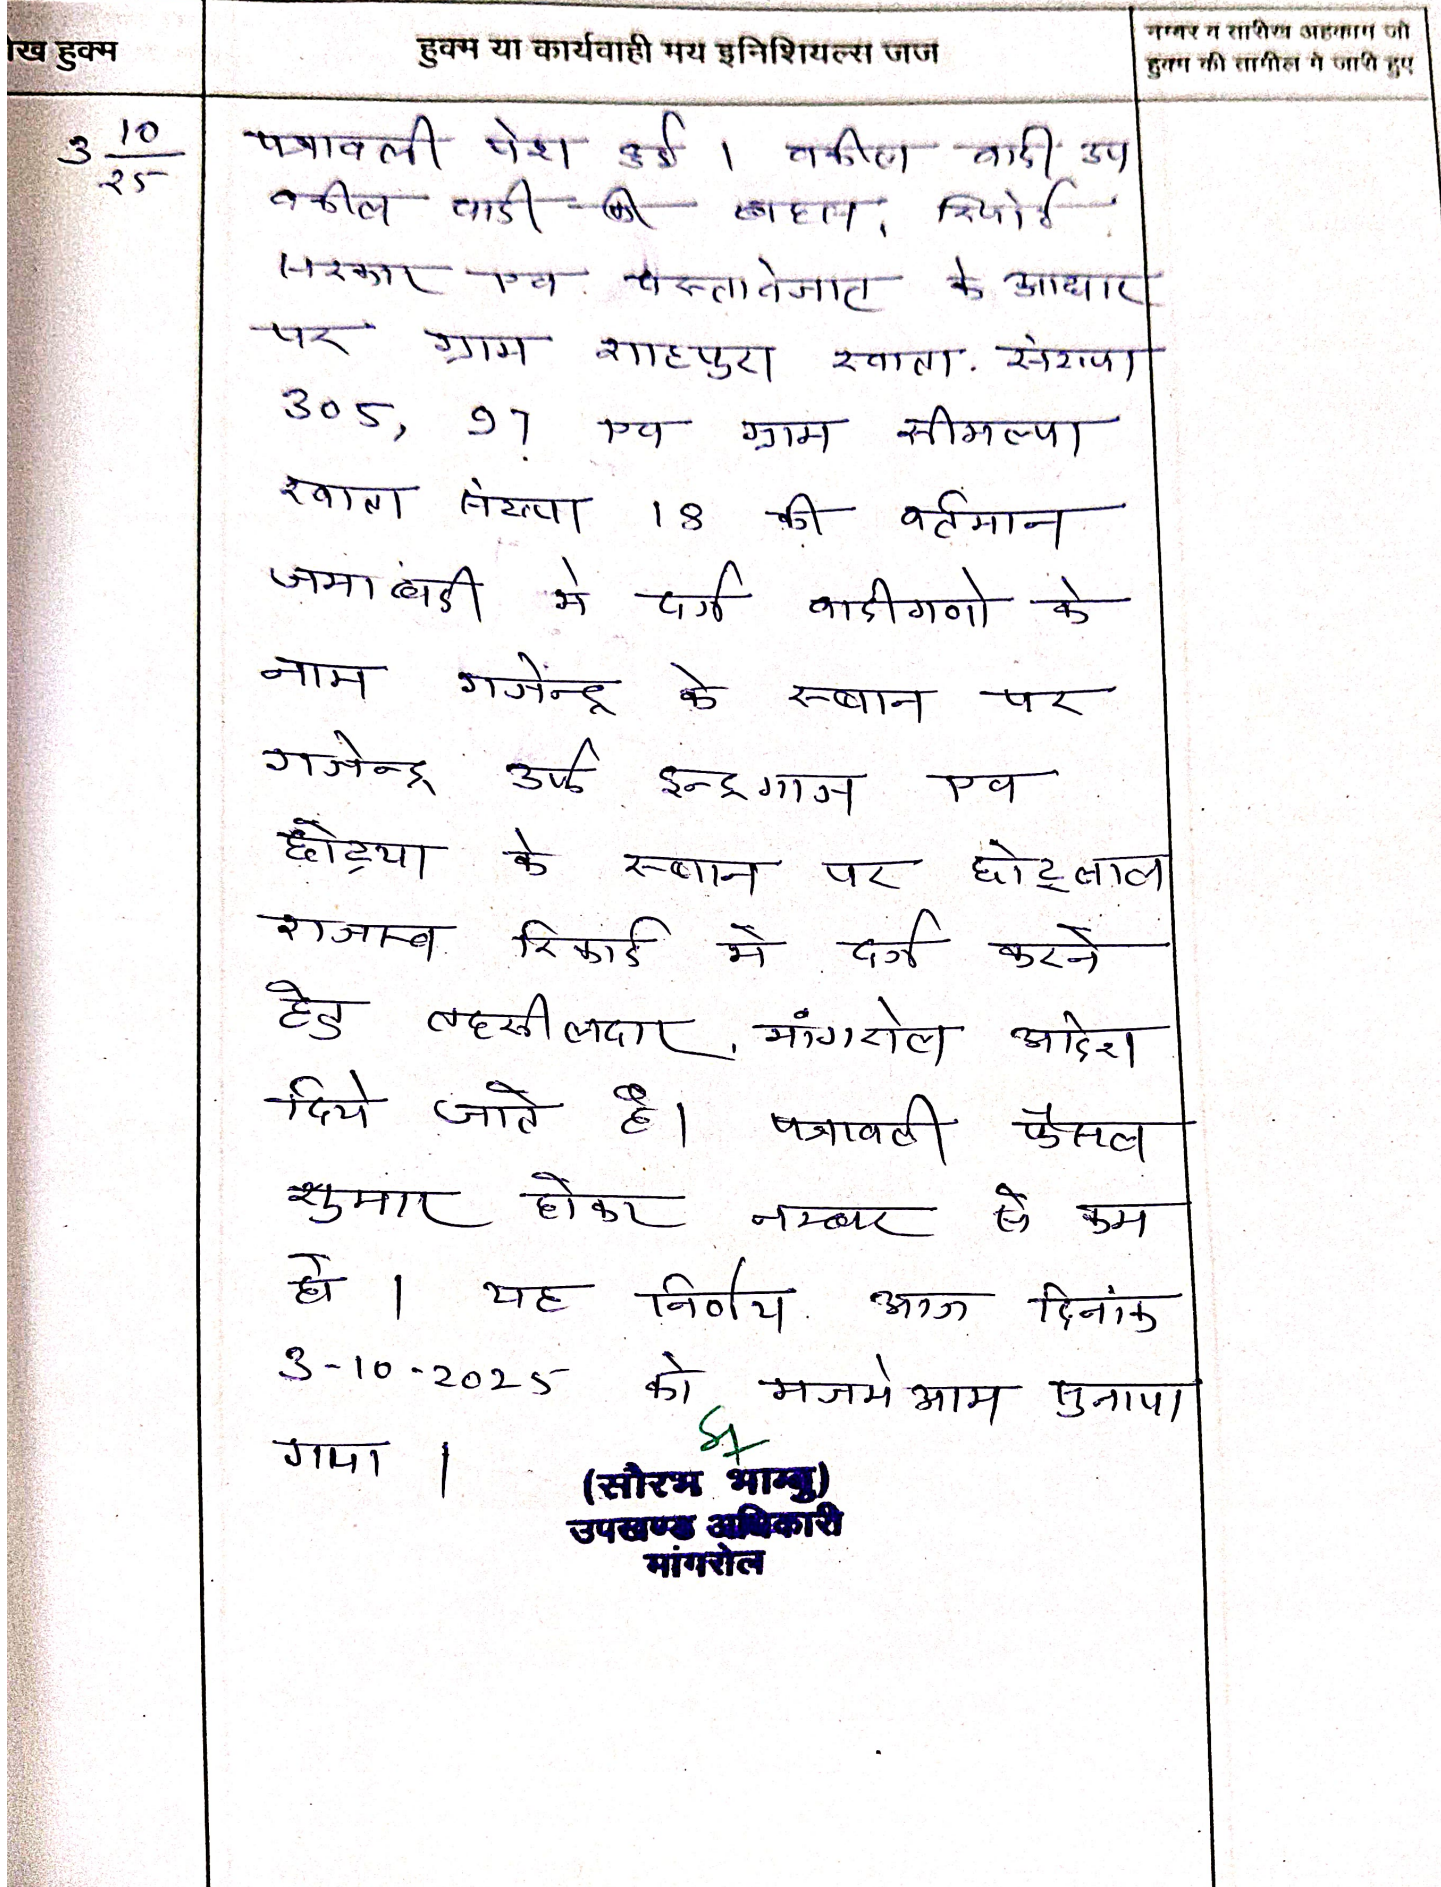 ीख हुक्म
हुक्म या कार्यवाही मय इनिशियल्स जज
नम्बर व तारीख अहकाम जो
हुक्म की तामील में जारी हुए
3 10/25
पत्रावली पेश हुई । वकील वादी उप
वकील वादी की बहस, रिपोर्ट
सरकार एव दस्तावेजात के आधार
पर ग्राम शाहपुरा खाता संख्या
305, 97 एव ग्राम सीमल्या
खाता संख्या 18 की वर्तमान
जमाबंदी मे दर्ज वादीगणो के
नाम गजेन्द्र के स्थान पर
गजेन्द्र उर्फ इन्द्रगाज एव
छोट्या के स्थान पर छोटूलाल
राजास्व रिकार्ड मे दर्ज करने
हेतु तहसीलदार, मांगरोल आदेश
दिये जाते है। पत्रावली फैसल
शुमार होकर नम्बर से कम
हो । यह निर्णय आज दिनांक
3-10-2025 को मजमे आम सुनाया
गया ।
(सौरभ भाम्बु)
उपखण्ड अधिकारी
मांगरोल